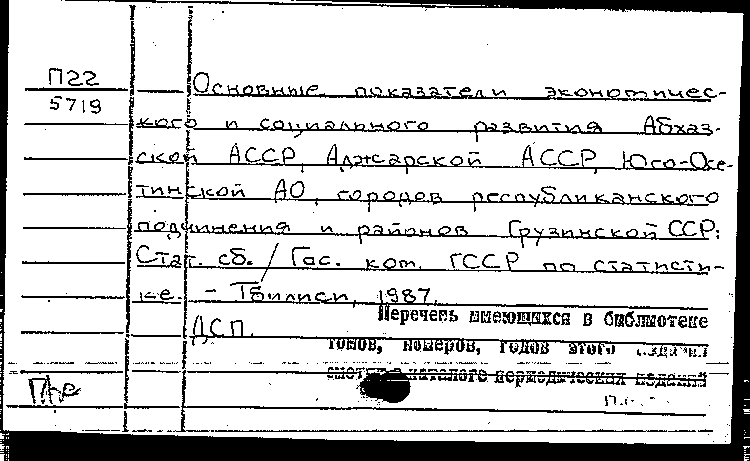 П22
5719
Основные показатели экономичес-
кого и социального развития Абхаз-
ской АССР, Аджарской АССР, Юго-Осе-
тинской АО, городов республиканского
подчинения и районов Грузинской ССР:
Стат. сб. / Гос. ком. ГССР по статисти-
ке. – Тбилиси, 1987.
ДСП.
Перечень имеющихся в библиотеке
томов, номеров, годов этого издания
смотри в каталоге периодических изданий